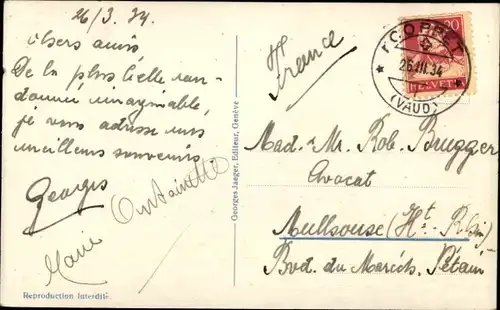 26/3. 34.
Chers amis
De la plus belle ran-
donnée imaginable,
je vous adresse mes
meilleurs souvenirs
Georges
Marie Antoinette
Reproduction interdite
Georges Jaeger, Editeur, Genève
France
20
HELVETIA
COPPET
26.III.34
(VAUD)
Mad. Mr. Rob. Brugger
Avocat
Mulhouse (Ht. Rhin)
Bvd. du Maréch. Pétain